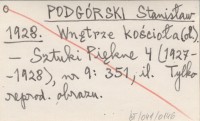 PODGÓRSKI Stanisław
1928. Wnętrze kościoła (ol.)
— Sztuki Piękne 4 (1927-
-1928), nr 9: 351, il. Tylko
reprod. obrazu.